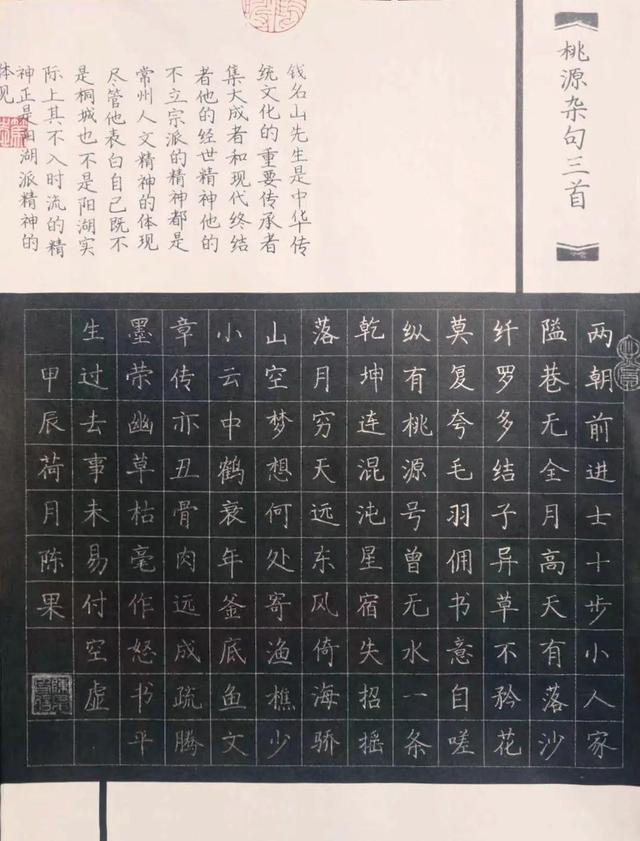 桃源杂句三首
钱名山先生是中华传
统文化的重要传承者
集大成者和现代终结
者他的经世精神他的
不立宗派的精神都是
常州人文精神的体现
尽管他表白自己既不
是桐城也不是阳湖实
际上其不入时流的精
神正是阳湖派精神的
体现
两朝前进士十步小人家
隘巷无全月高天有落沙
纤罗多结子异草不矜花
莫复夸毛羽佣书意自嗟
纵有桃源号曾无水一条
乾坤连混沌星宿失招摇
落月穷天远东风倚海骄
山空梦想何处寄渔樵少
小云中鹤衰年釜底鱼文
章传亦丑骨肉远成疏腾
墨荣幽草枯毫作怒书平
生过去事未易付空虚
甲辰荷月陈果